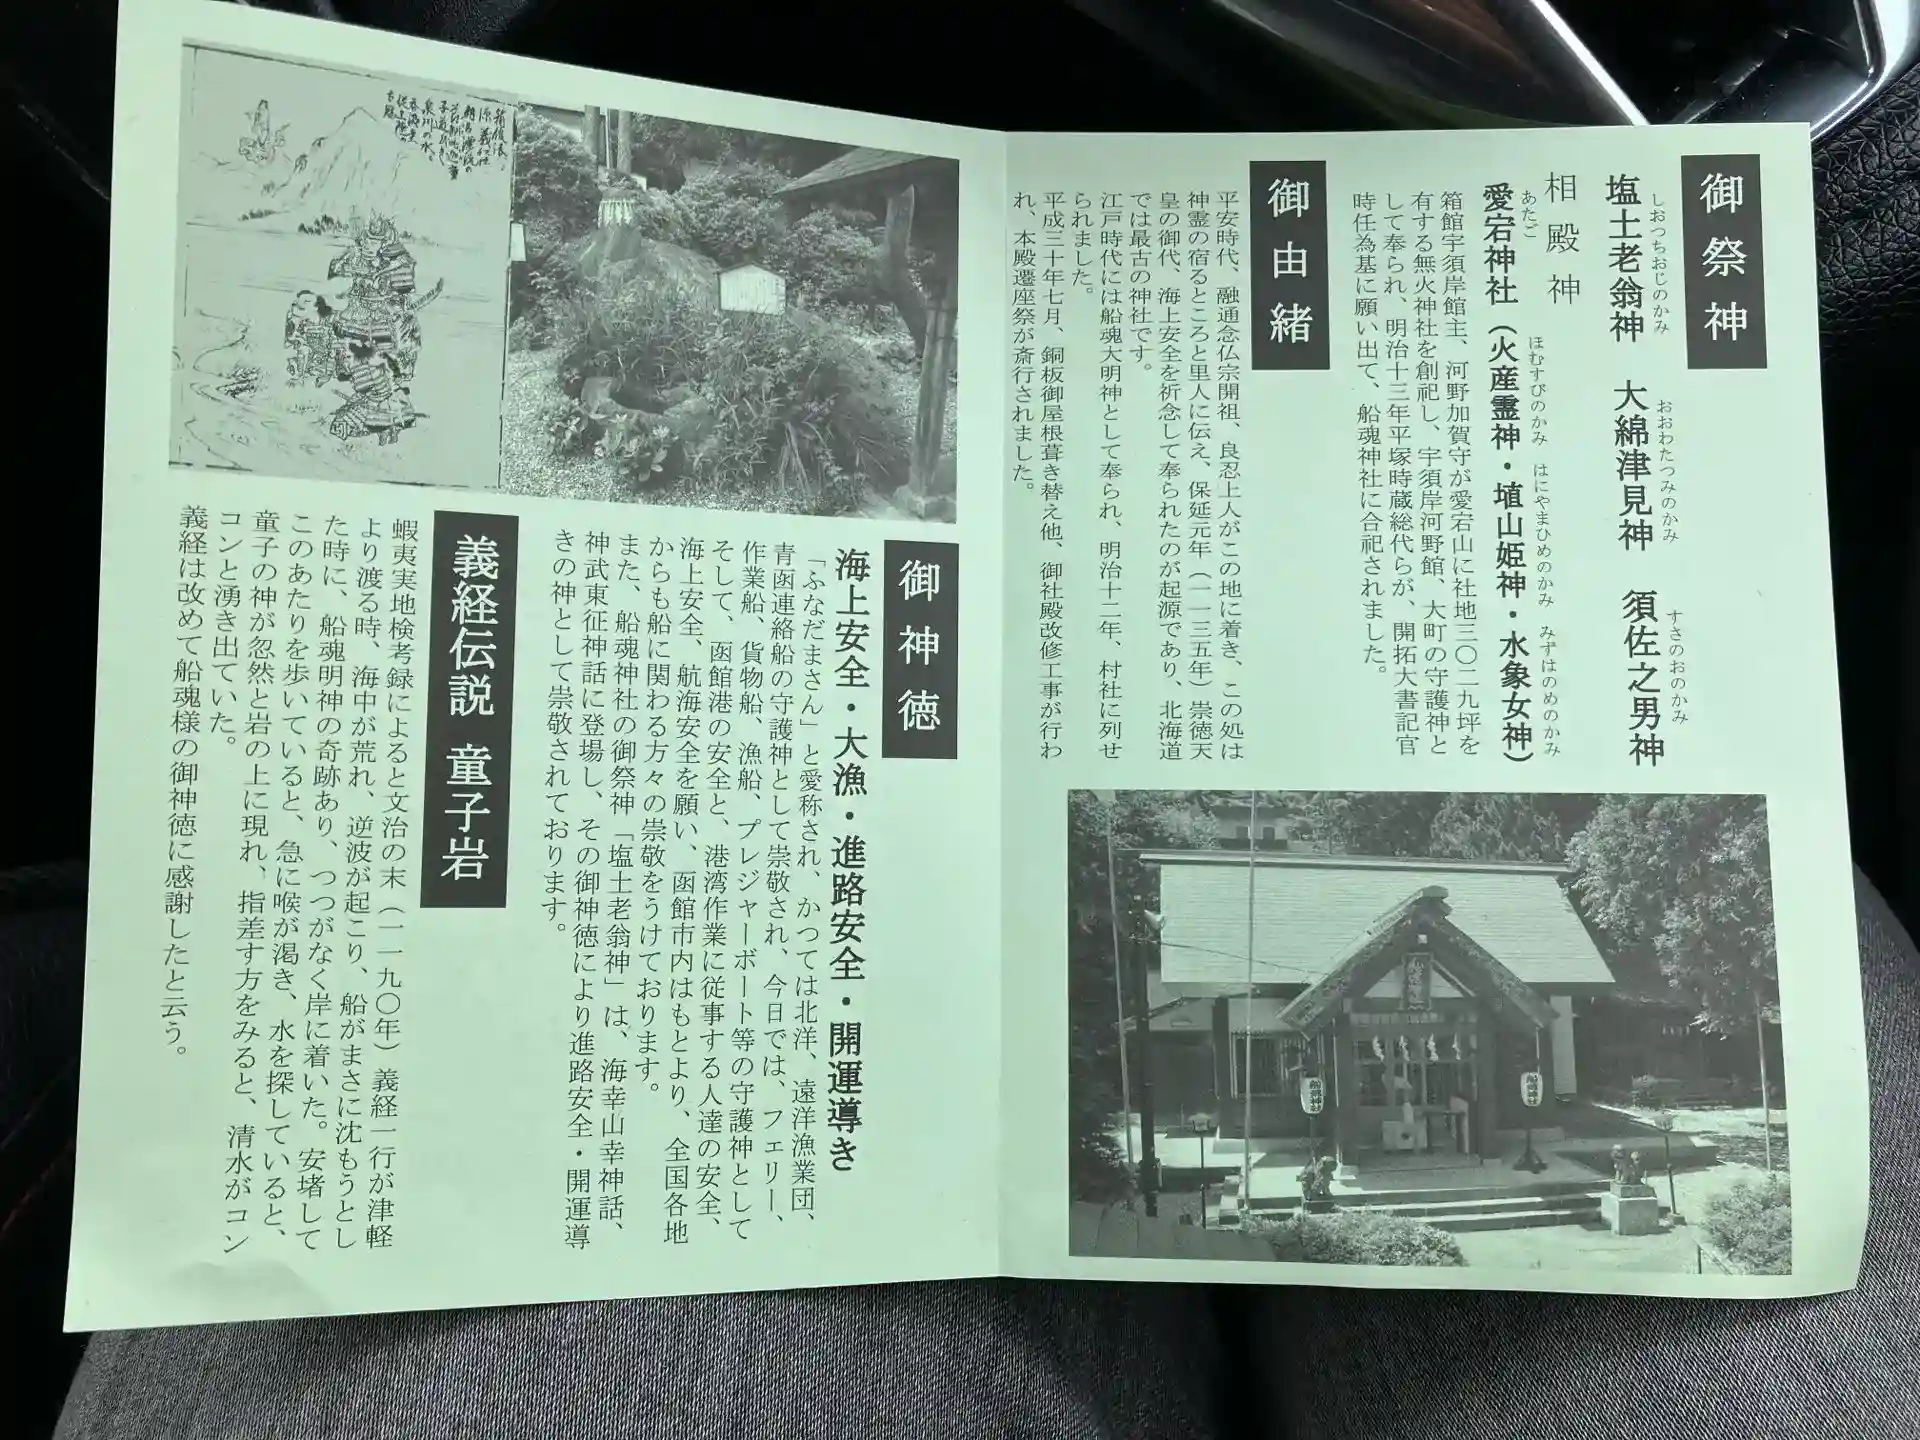 御祭神
塩土老翁神 大綿津見神 須佐之男神
しおつちおじのかみ おおわたつみのかみ すさのおのかみ
相殿神
愛宕神社(火産霊神・埴山姫神・水象女神)
あたご ほむすびのかみ はにやまひめのかみ みずはのめのかみ
箱館宇須岸館主、河野加賀守が愛宕山に社地三〇二九坪を
有する無火神社を創祀し、宇須岸河野館、大町の守護神と
して奉られ、明治十三年平塚時蔵総代らが、開拓大書記官
時任為基に願い出て、船魂神社に合祀されました。
御由緒
平安時代、融通念仏宗開祖、良忍上人がこの地に着き、この処は
神霊の宿るところと里人に伝え、保延元年(一一三五年)崇徳天
皇の御代、海上安全を祈念して奉られたのが起源であり、北海道
では最古の神社です。
江戸時代には船魂大明神として奉られ、明治十二年、村社に列せ
られました。
平成三十年七月、銅板御屋根葺き替え他、御社殿改修工事が行わ
れ、本殿遷座祭が斎行されました。
船魂神社
船魂神社
御神徳
海上安全・大漁・進路安全・開運導き
「ふなだまさん」と愛称され、かつては北洋、遠洋漁業団、
青函連絡船の守護神として崇敬され、今日では、フェリー、
作業船、貨物船、漁船、プレジャーボート等の守護神として
そして、函館港の安全と、港湾作業に従事する人達の安全、
海上安全、航海安全を願い、函館市内はもとより、全国各地
からも船に関わる方々の崇敬をうけております。
また、船魂神社の御祭神「塩土老翁神」は、海幸山幸神話、
神武東征神話に登場し、その御神徳により進路安全・開運導
きの神として崇敬されております。
義経伝説 童子岩
蝦夷実地検考録によると文治の末(一一九〇年)義経一行が津軽
より渡る時、海中が荒れ、逆波が起こり、船がまさに沈もうとし
た時に、船魂明神の奇跡あり、つつがなく岸に着いた。安堵して
このあたりを歩いていると、急に喉が渇き、水を探していると、
童子の神が忽然と岩の上に現れ、指差す方をみると、清水がコン
コンと湧き出ていた。
義経は改めて船魂様の御神徳に感謝したと云う。